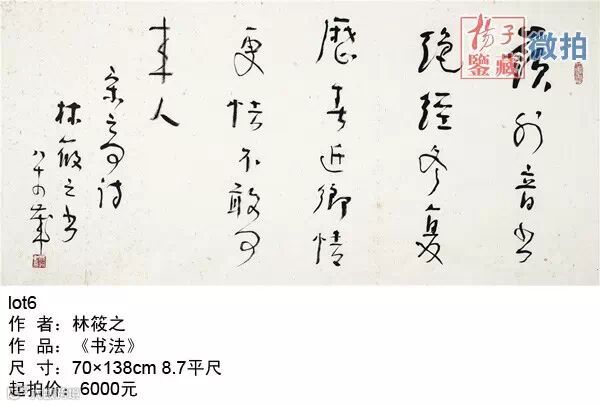 揚子
鑒藏
微拍
嶺外音书
絕經冬复
歷春近鄉情
更怯不敢问
来人
宋之问诗
林筱之书
八十四歲
lot6
作 者：林筱之
作 品：《书法》
尺 寸：70×138cm 8.7平尺
起拍价：6000元